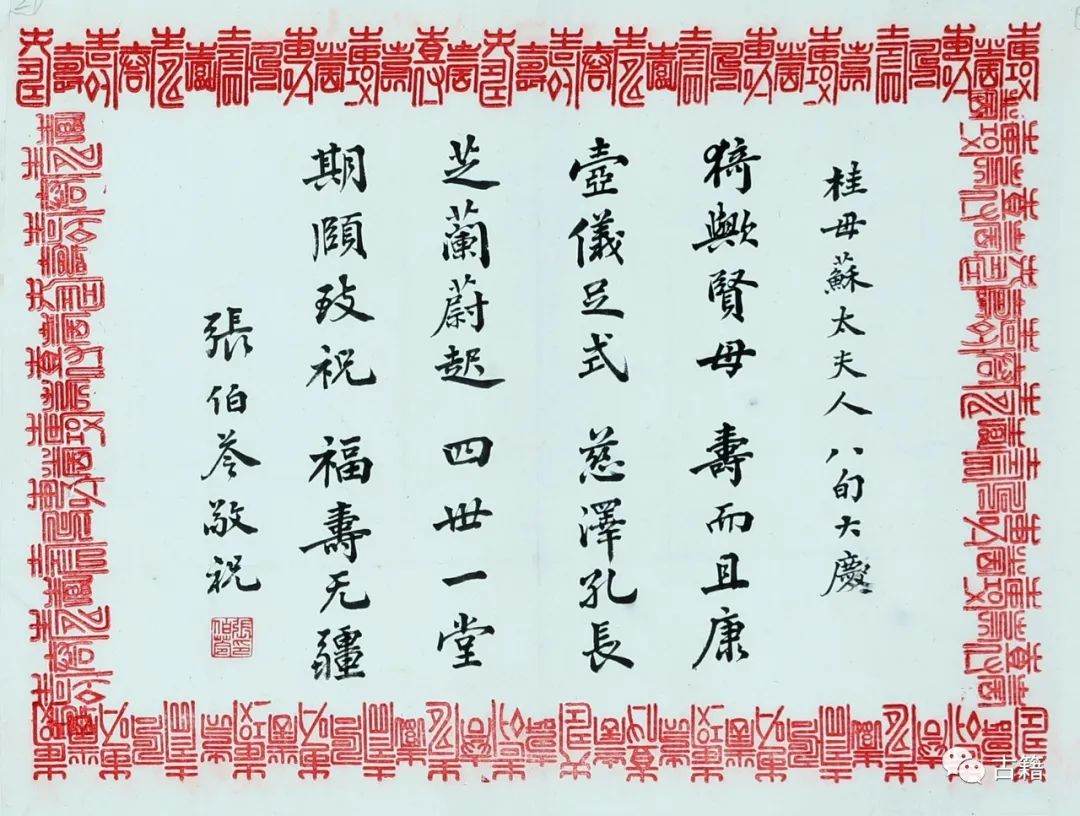 桂母蘇太夫人八旬大慶
猗歟賢母 壽而且康
壺儀足式 慈澤孔長
芝蘭蔚起 四世一堂
期頤致祝 福壽无疆
張伯苓敬祝
張伯苓印
古籍